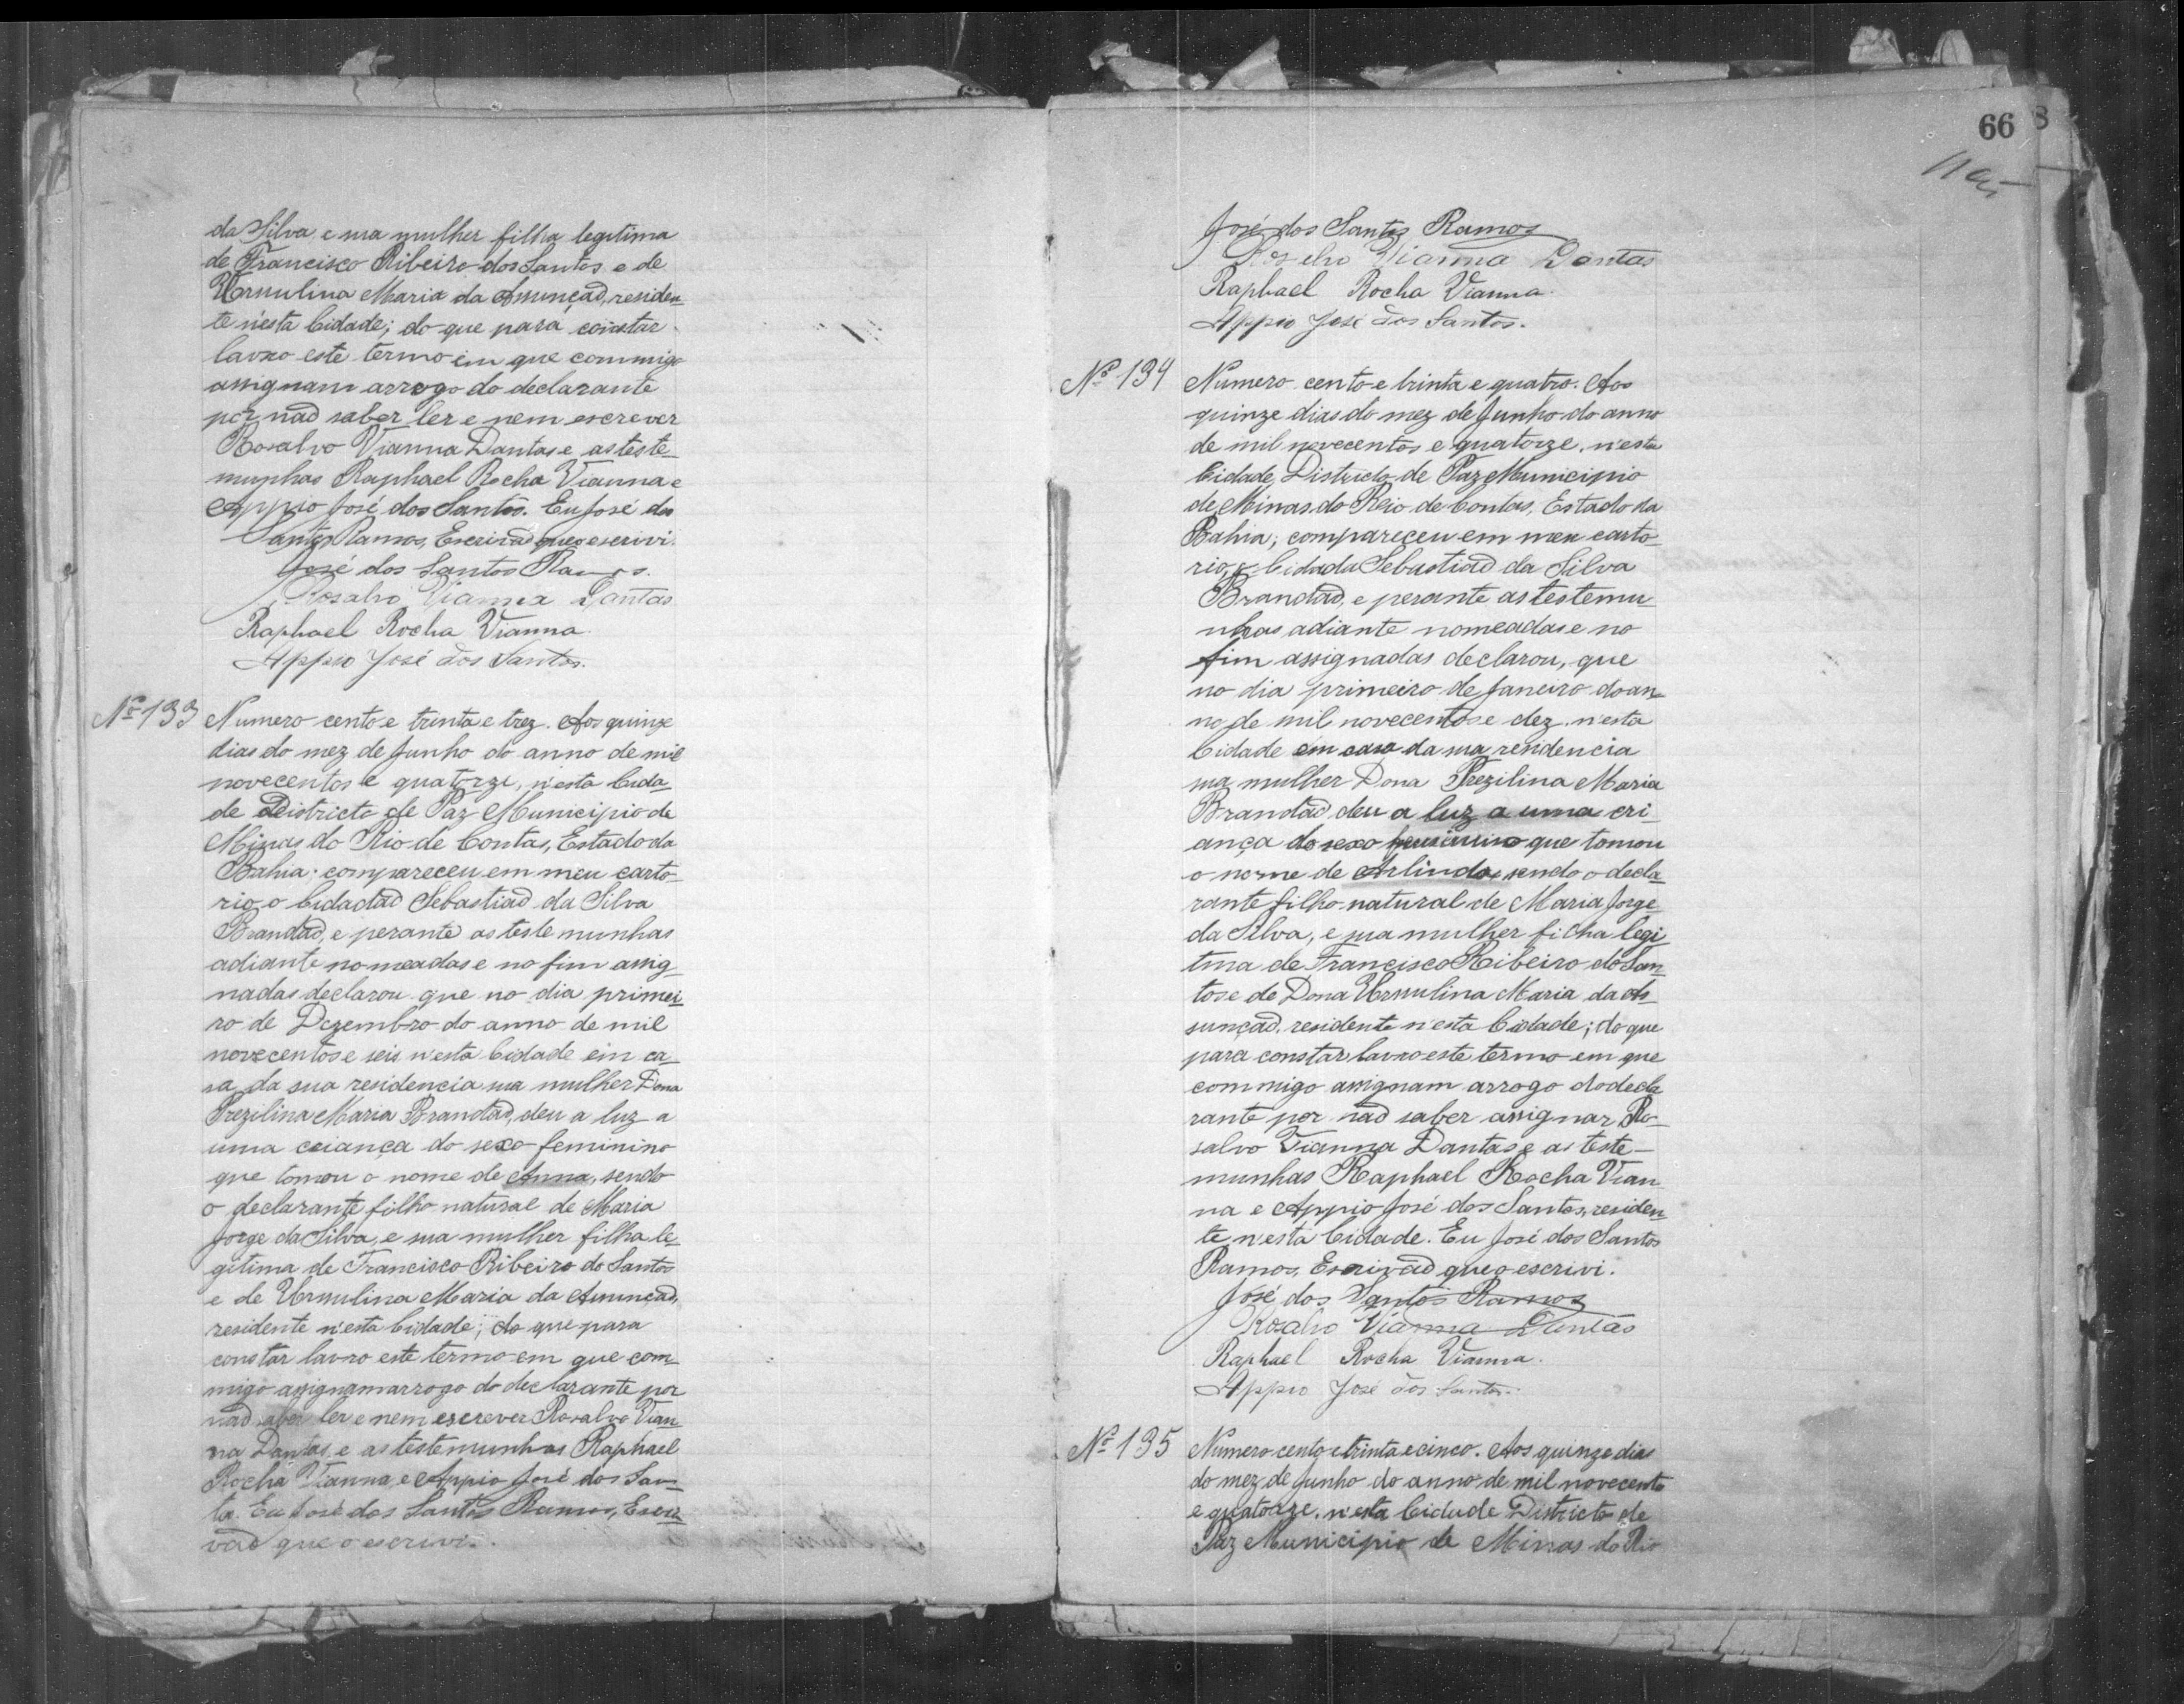 da Silva, e sua mulher filha legitima
de Francisco Ribeiro dos Santos e de
Ursulina Maria da Assunçaõ, residen_
te n'esta Cidade; do que para constar
lavro este termo em que commigo
assignam arrogo do declarante
por naõ saber ler e nem escrever
Rosalvo Vianna Dantas e as teste_
munhas Raphael Rocha Vianna e
Appio José dos Santos. Eu José dos
Santos Ramos, Escrivaõ que o escrivi.
José dos Santos Ramos.
Rosalvo Vianna Dantas
Raphael Rocha Vianna.
Appio José dos Santos.
Nº 133 Numero cento e trinta e trez. Aos quinze
dias do mez de Junho do anno de mil
novecentos e quatorze, n'esta Cida_
de Districto de Paz Municipio de
Minas do Rio de Contas, Estado da
Bahia; compareceu em meu carto_
rio, o Cidadaõ Sebastiaõ da Silva
Brandaõ, e perante as teste munhas
adiante nomeadas e no fim assig_
nadas declarou que no dia primei_
ro de Dezembro do anno de mil
novecentos e seis n'esta Cidade em ca_
sa da sua residencia sua mulher Dona
Prezilina Maria Brandaõ, deu a luz a
uma criança do sexo feminino
que tomou o nome de Anna, sendo
o declarante filho natural de Maria
Jorge da Silva, e sua mulher filha le_
gitima de Francisco Ribeiro do Santos
e de Ursulina Maria da Assunçaõ,
residente n'esta Cidade; do que para
constar lavro este termo em que com_
migo assignam arrogo do declarante por
naõ saber ler e nem escrever Rosalvo Vian_
na Dantas, e as testemunhas Raphael
Rocha Vianna, e Appio José dos San_
tos. Eu José dos Santos Ramos, Escri_
vaõ que o escrivi.
66 8
José dos Santos Ramos
Rosalvo Vianna Dantas
Raphael Rocha Vianna.
Appio José dos Santos.
Nº 134 Numero cento e trinta e quatro. Aos
quinze dias do mez de Junho do anno
de mil novecentos e quatorze, n'esta
Cidade, Districto de Paz Municipio
de Minas do Rio de Contas, Estado da
Bahia; compareceu em meu carto_
rio, o Cidada Sebastiaõ da Silva
Brandaõ, e perante as testemu_
nhas adiante nomeadas e no
fim assignadas declarou, que
no dia primeiro de Janeiro do an_
no de mil novecentos e dez, n'esta
Cidade em casa da sua residencia
sua mulher Dona Prezilina Maria
Brandaõ, deu a luz a uma cri_
ança do sexo feminino que tomou
o nome de Arlinda, sendo o decla_
rante filho natural de Maria Jorge
da Silva, e sua mulher ficha legi_
tma de Francisco Ribeiro do San_
tos e de Dona Ursulina Maria da As_
sunçaõ, residente n'esta Cidade; do que
para constar lavro este termo em que
commigo assignam arrogo do decla_
rante por naõ saber assignar Ro_
salvo Vianna Dantas e as teste_
munhas Raphael Rocha Vian_
na e Appio José dos Santos, residen_
te n'esta Cidade. Eu José dos Santos
Ramos, Escrivaõ que o escrivi.
José dos Santos Ramos
Rosalvo Vianna Dantas
Raphael Rocha Vianna.
Appio José dos Santos.
Nº 135 Numero cento e trinta e cinco. Aos quinze dias
do mez de Junho do anno de mil novecento
e quatorze, n'esta Cidade Districto de
Paz Municipio de Minas do Rio